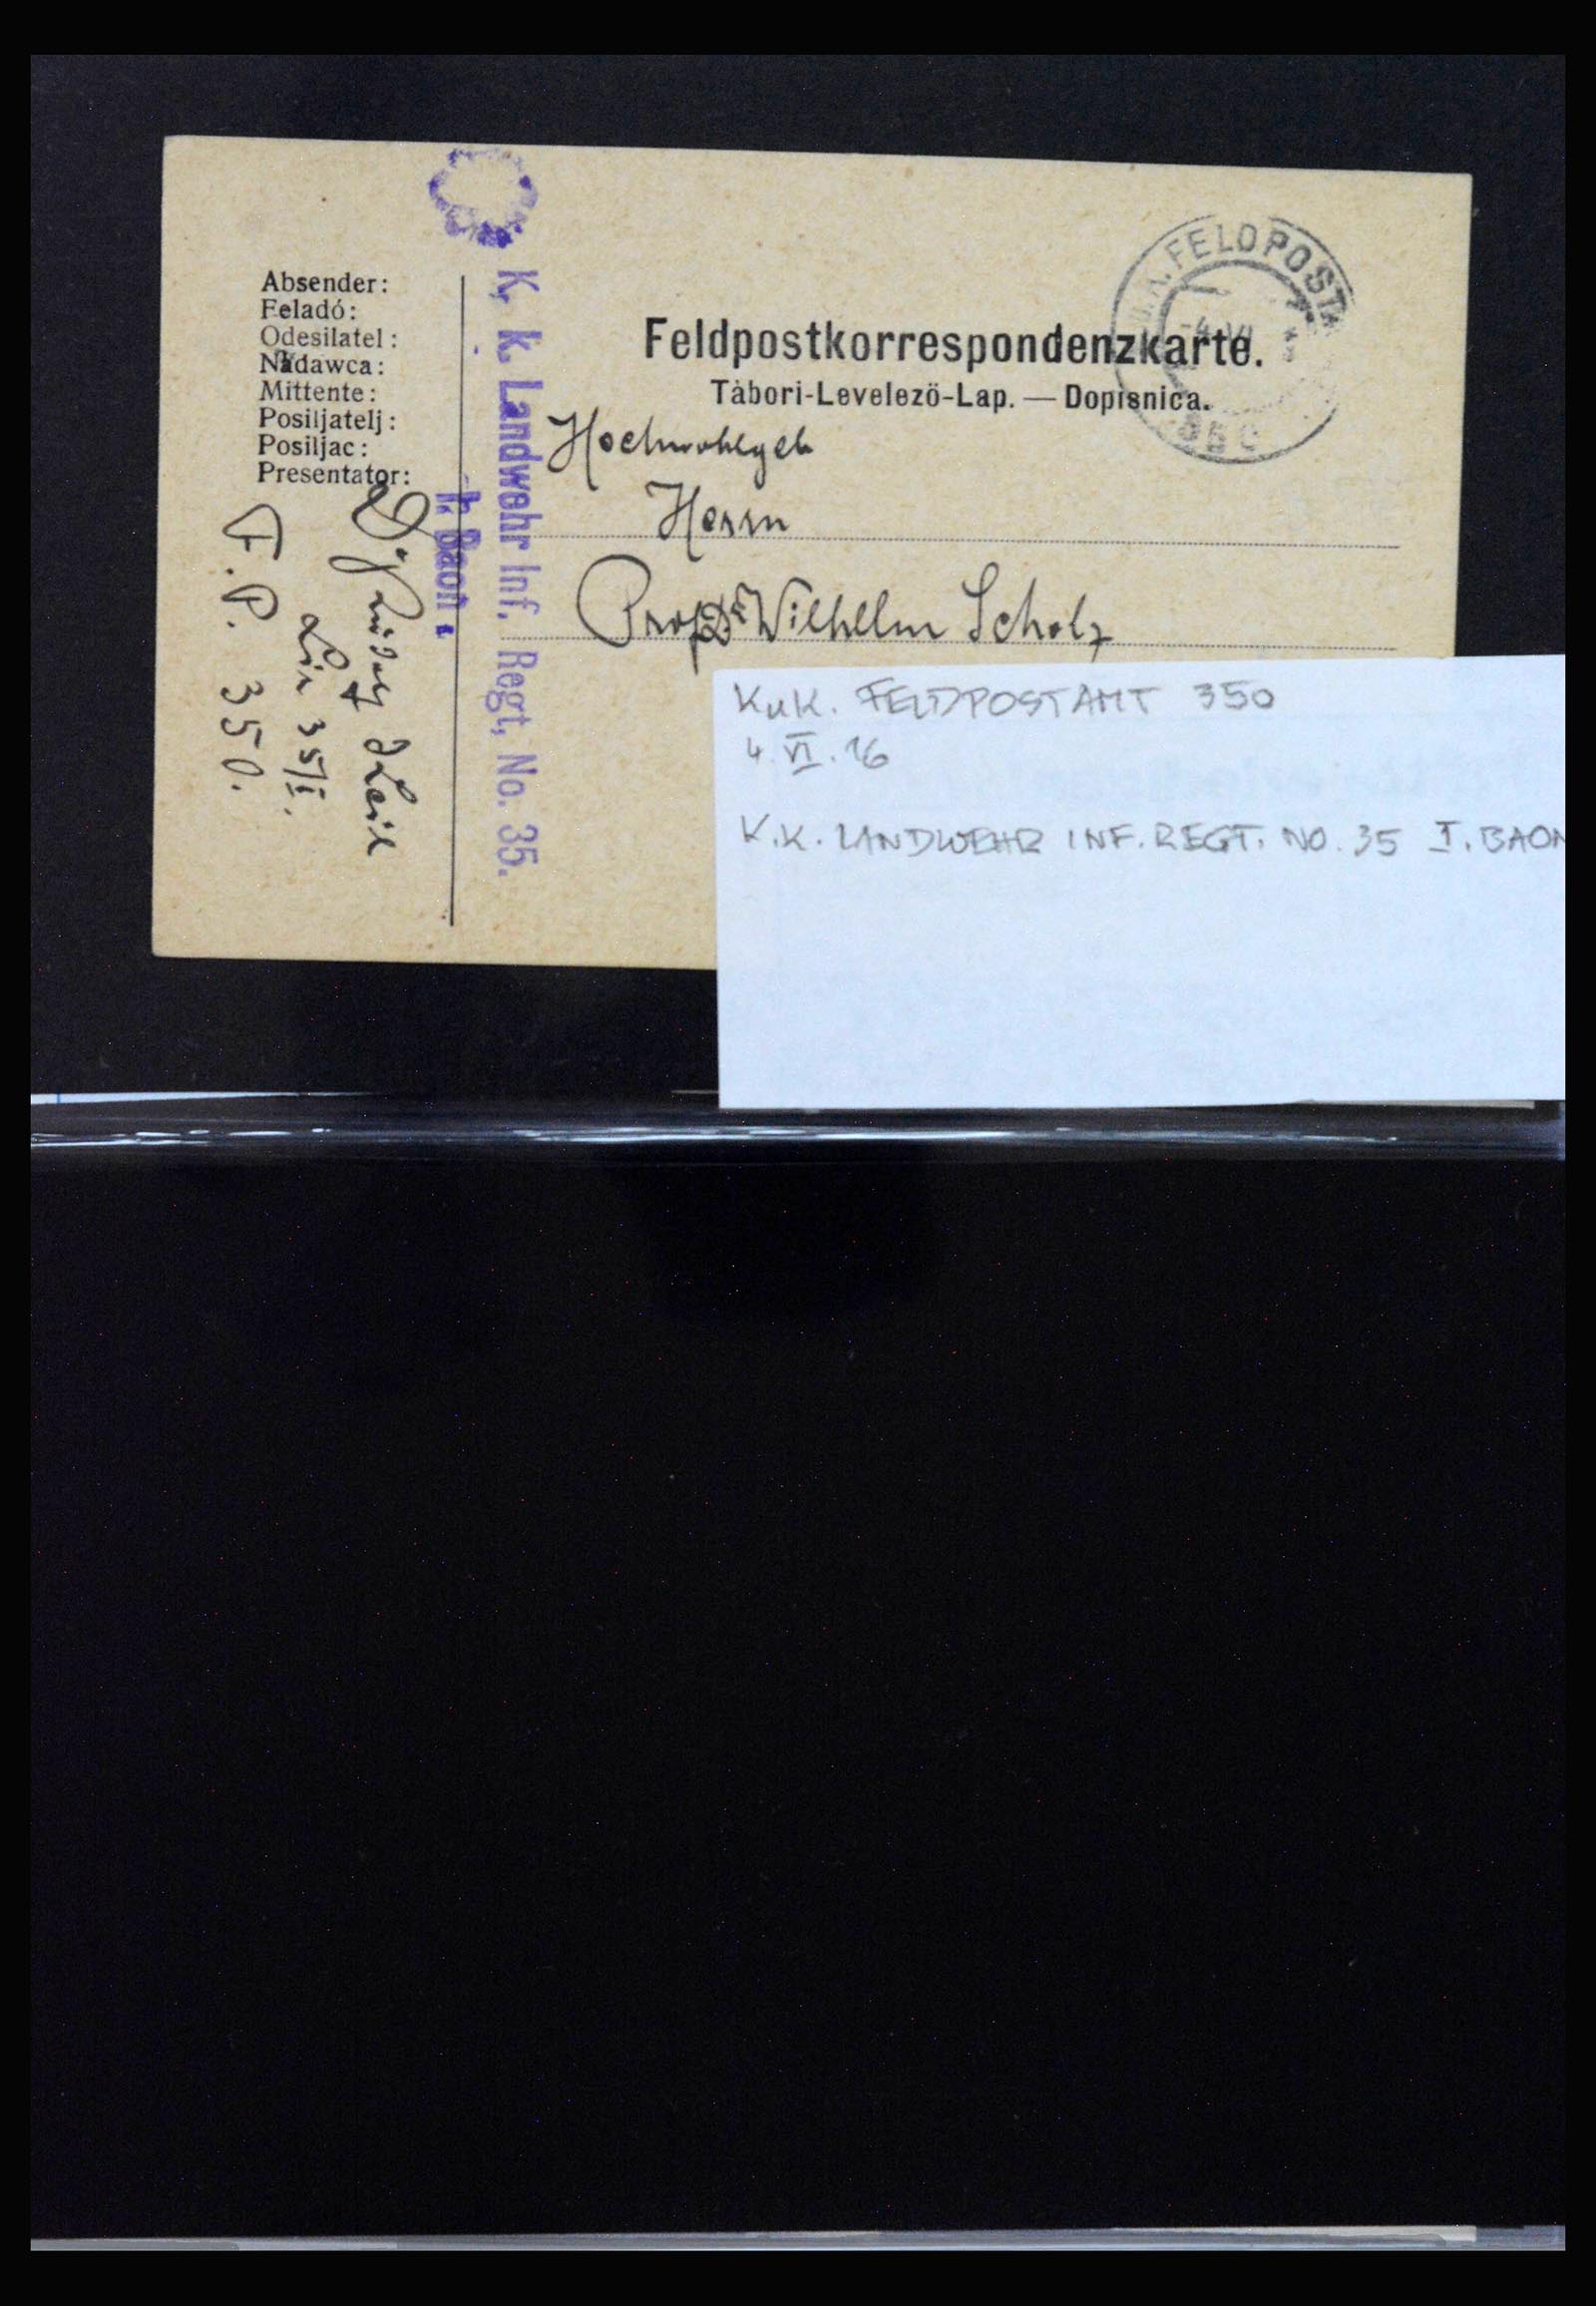 Absender:
Feladó:
Odesilatel:
Nadawca:
Mittente:
Posiljatelj:
Posiljac:
Presentator:
Lir 35/I.
F. P. 350.
K. K. Landwehr Inf. Regt, No. 35.
I. Baon.
K.u.K. FELDPOSTA
-4.VI
350
Feldpostkorrespondenzkarte.
Tàbori-Levelezö-Lap. — Dopisnica.
Hochwohlgeb
Herrn
Prof Dr Wilhelm Scholz
KuK. FELDPOSTAMT 350
4. VI. 16
K.K. LANDWEHR INF. REGT. NO. 35 I. BAON